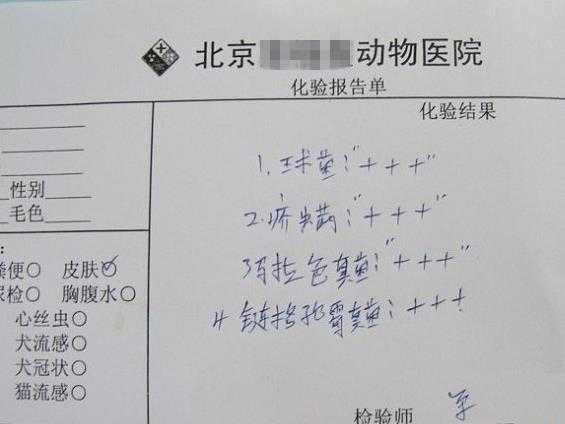 北京 动物医院
化验报告单
化验结果
性别
毛色
粪便○ 皮肤○✓
尿检○ 胸腹水○
心丝虫○
犬流感○
犬冠状○
猫流感○
1.球菌："+++"
2.疥螨："+++"
3.马拉色菌："+++"
4.链格孢霉菌：+++
检验师